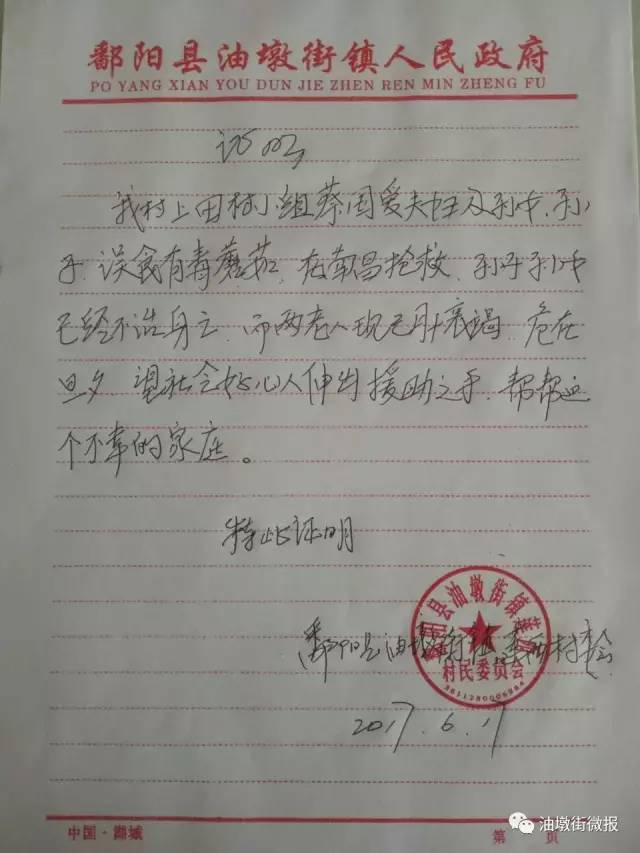 鄱阳县油墩街镇人民政府
PO YANG XIAN YOU DUN JIE ZHEN REN MIN ZHENG FU
证明
我村上田村小组蔡国爱夫妇及孙女、孙
子误食有毒蘑菇，在南昌抢救，孙子孙女
已经不治身亡，而两老人现已肝衰竭，危在
旦夕，望社会好心人伸出援助之手，帮帮这
个不幸的家庭。
特此证明
鄱阳县油墩街镇 村委会
鄱阳县油墩街镇
村民委员会
2017.6.17
中国·湖城
第 页
油墩街微报